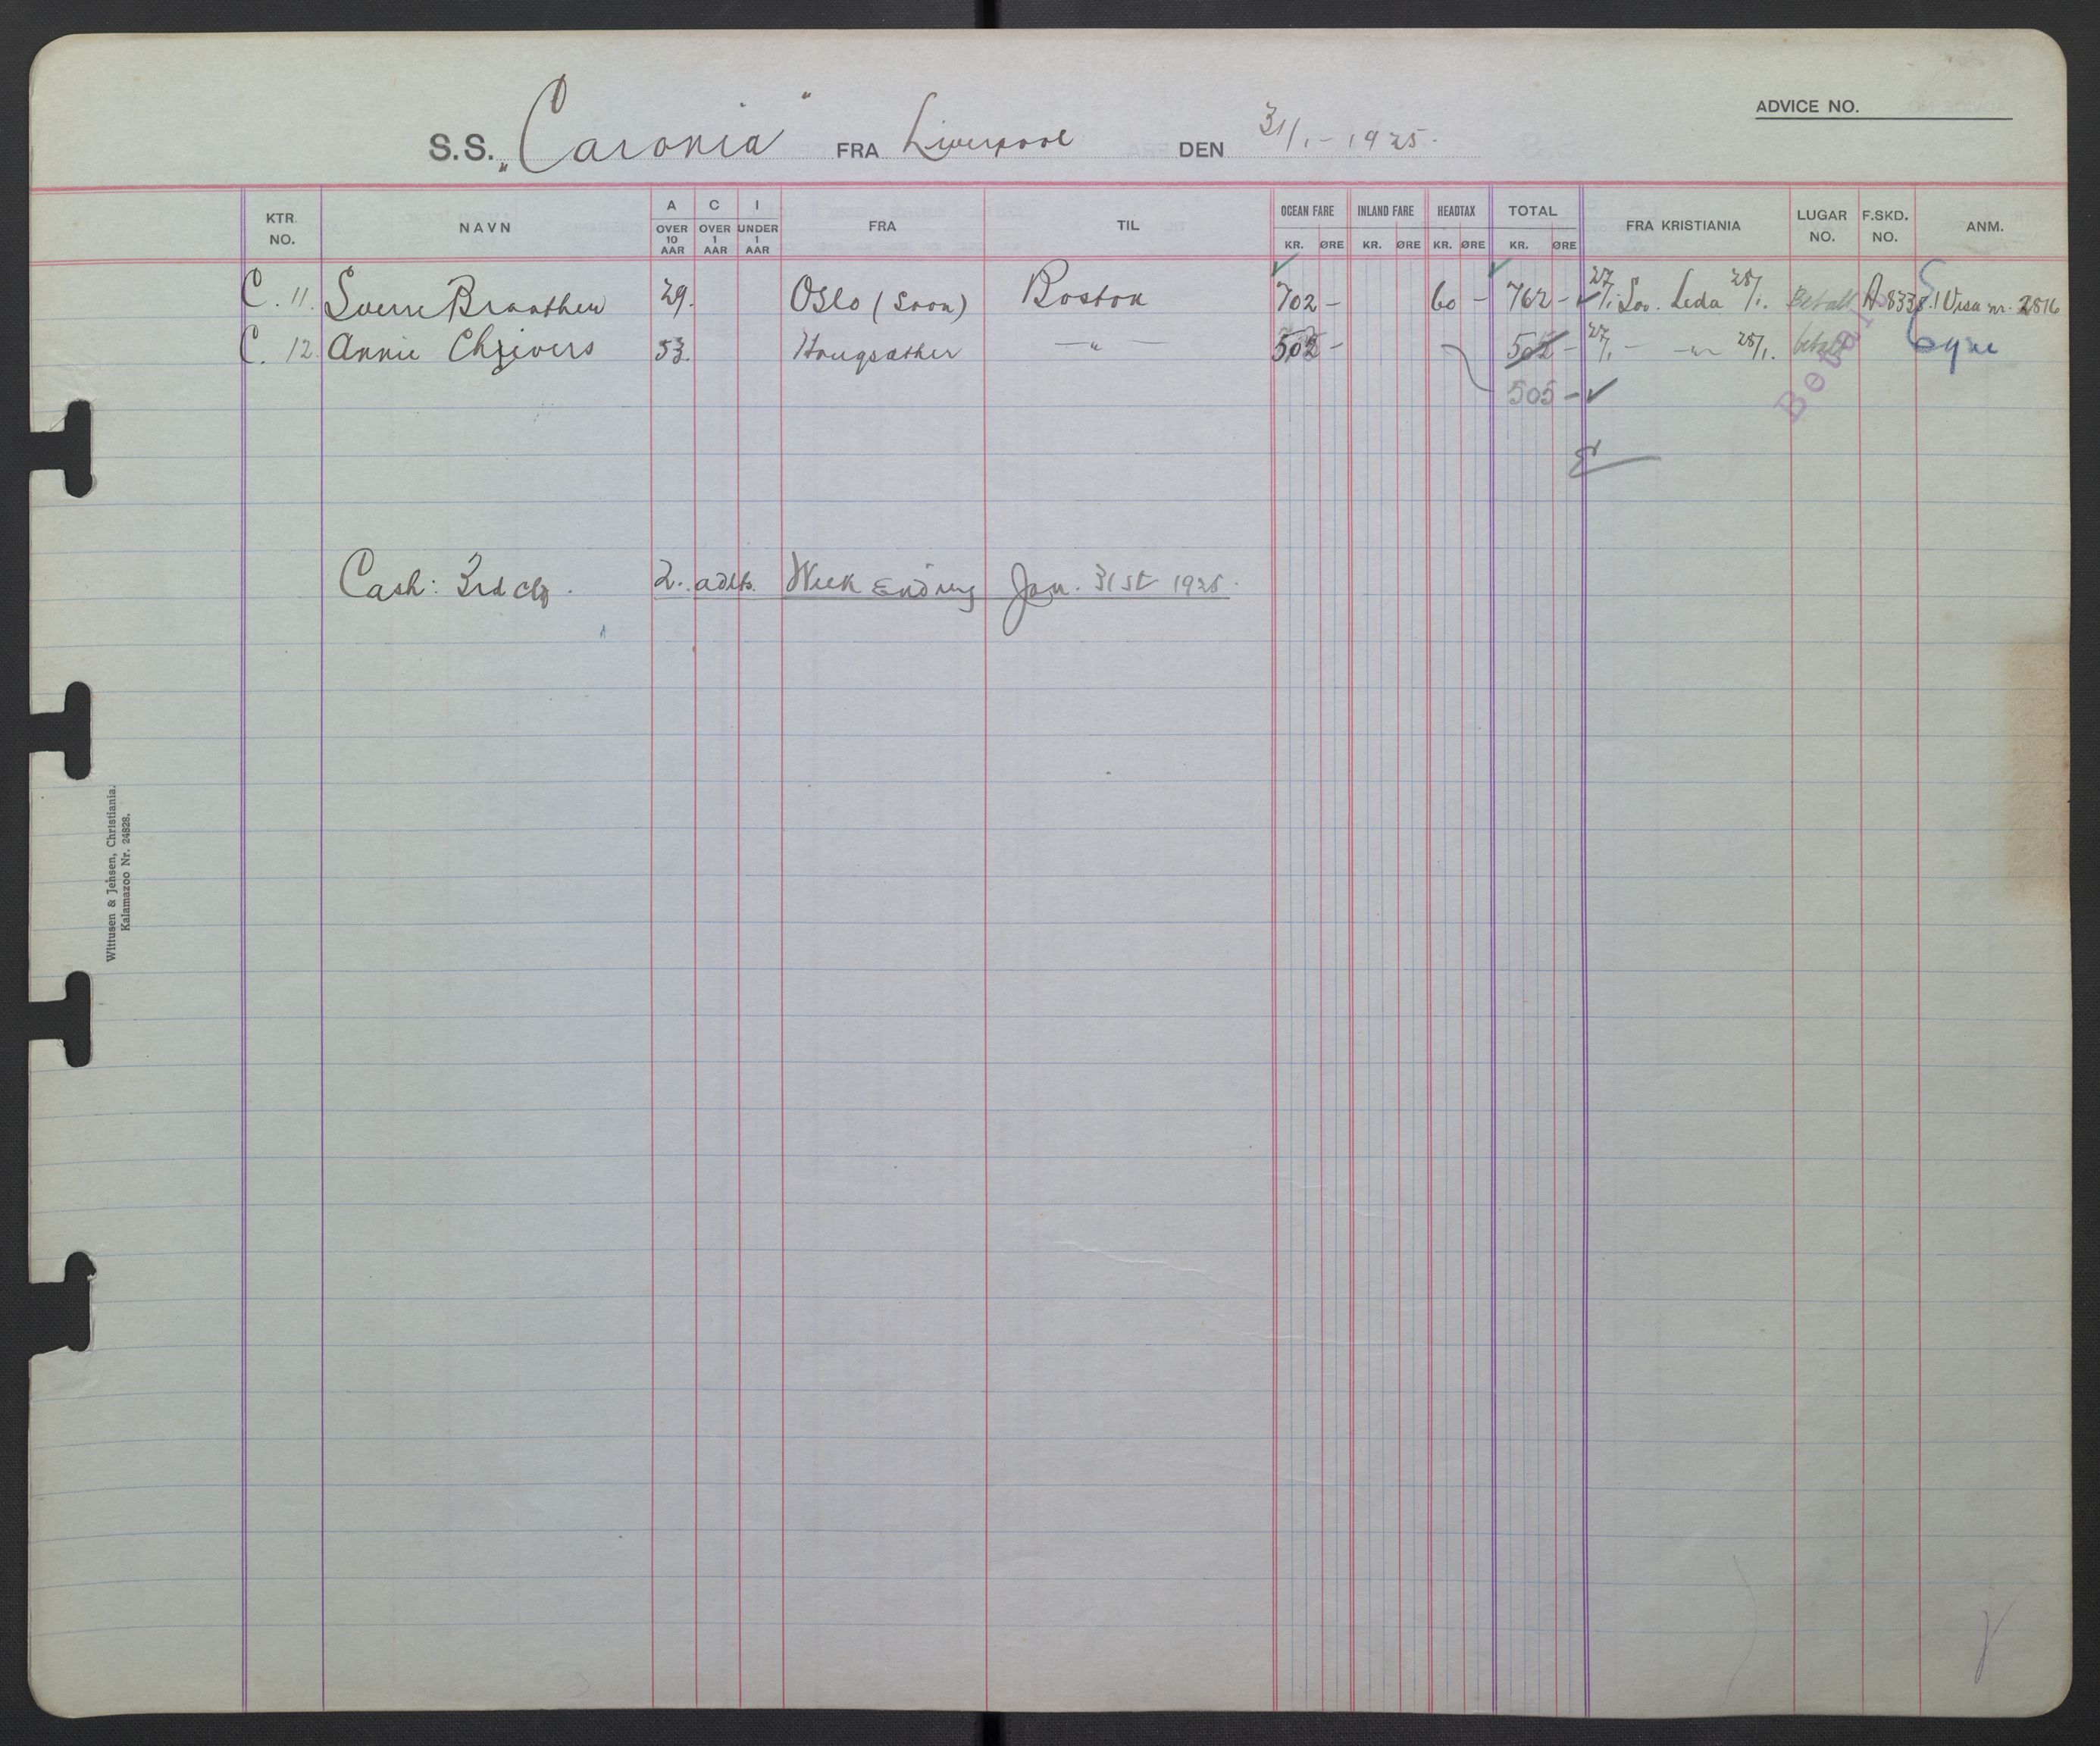 ADVICE NO.
S.S. „Caronia" FRA Liverpool DEN 31/1 - 1925.
KTR. NO. NAVN A OVER 10 AAR C OVER 1 AAR I UNDER 1 AAR FRA TIL OCEAN FARE KR. ØRE INLAND FARE KR. ØRE HEADTAX KR. ØRE TOTAL KR. ØRE FRA KRISTIANIA LUGAR NO. F.SKD. NO. ANM.
C. 11. Sverre Braathen 29. Oslo (Soon) Boston 702 - 60 - 762 - 27/1 Lov. Leda 28/1. Betalt A 8338. Visa nr. 2516
C. 12. Annie Chjivers 53. Hougsather — " — 502 - 502 - 27/1 - — " — 28/1. betalt
505 -
Betalt
Cash: 3rd cls. 2. adlts. Week Ending Jan. 31st 1925.
Wittusen & Jensen, Christiania.
Kalamazoo Nr. 24828.